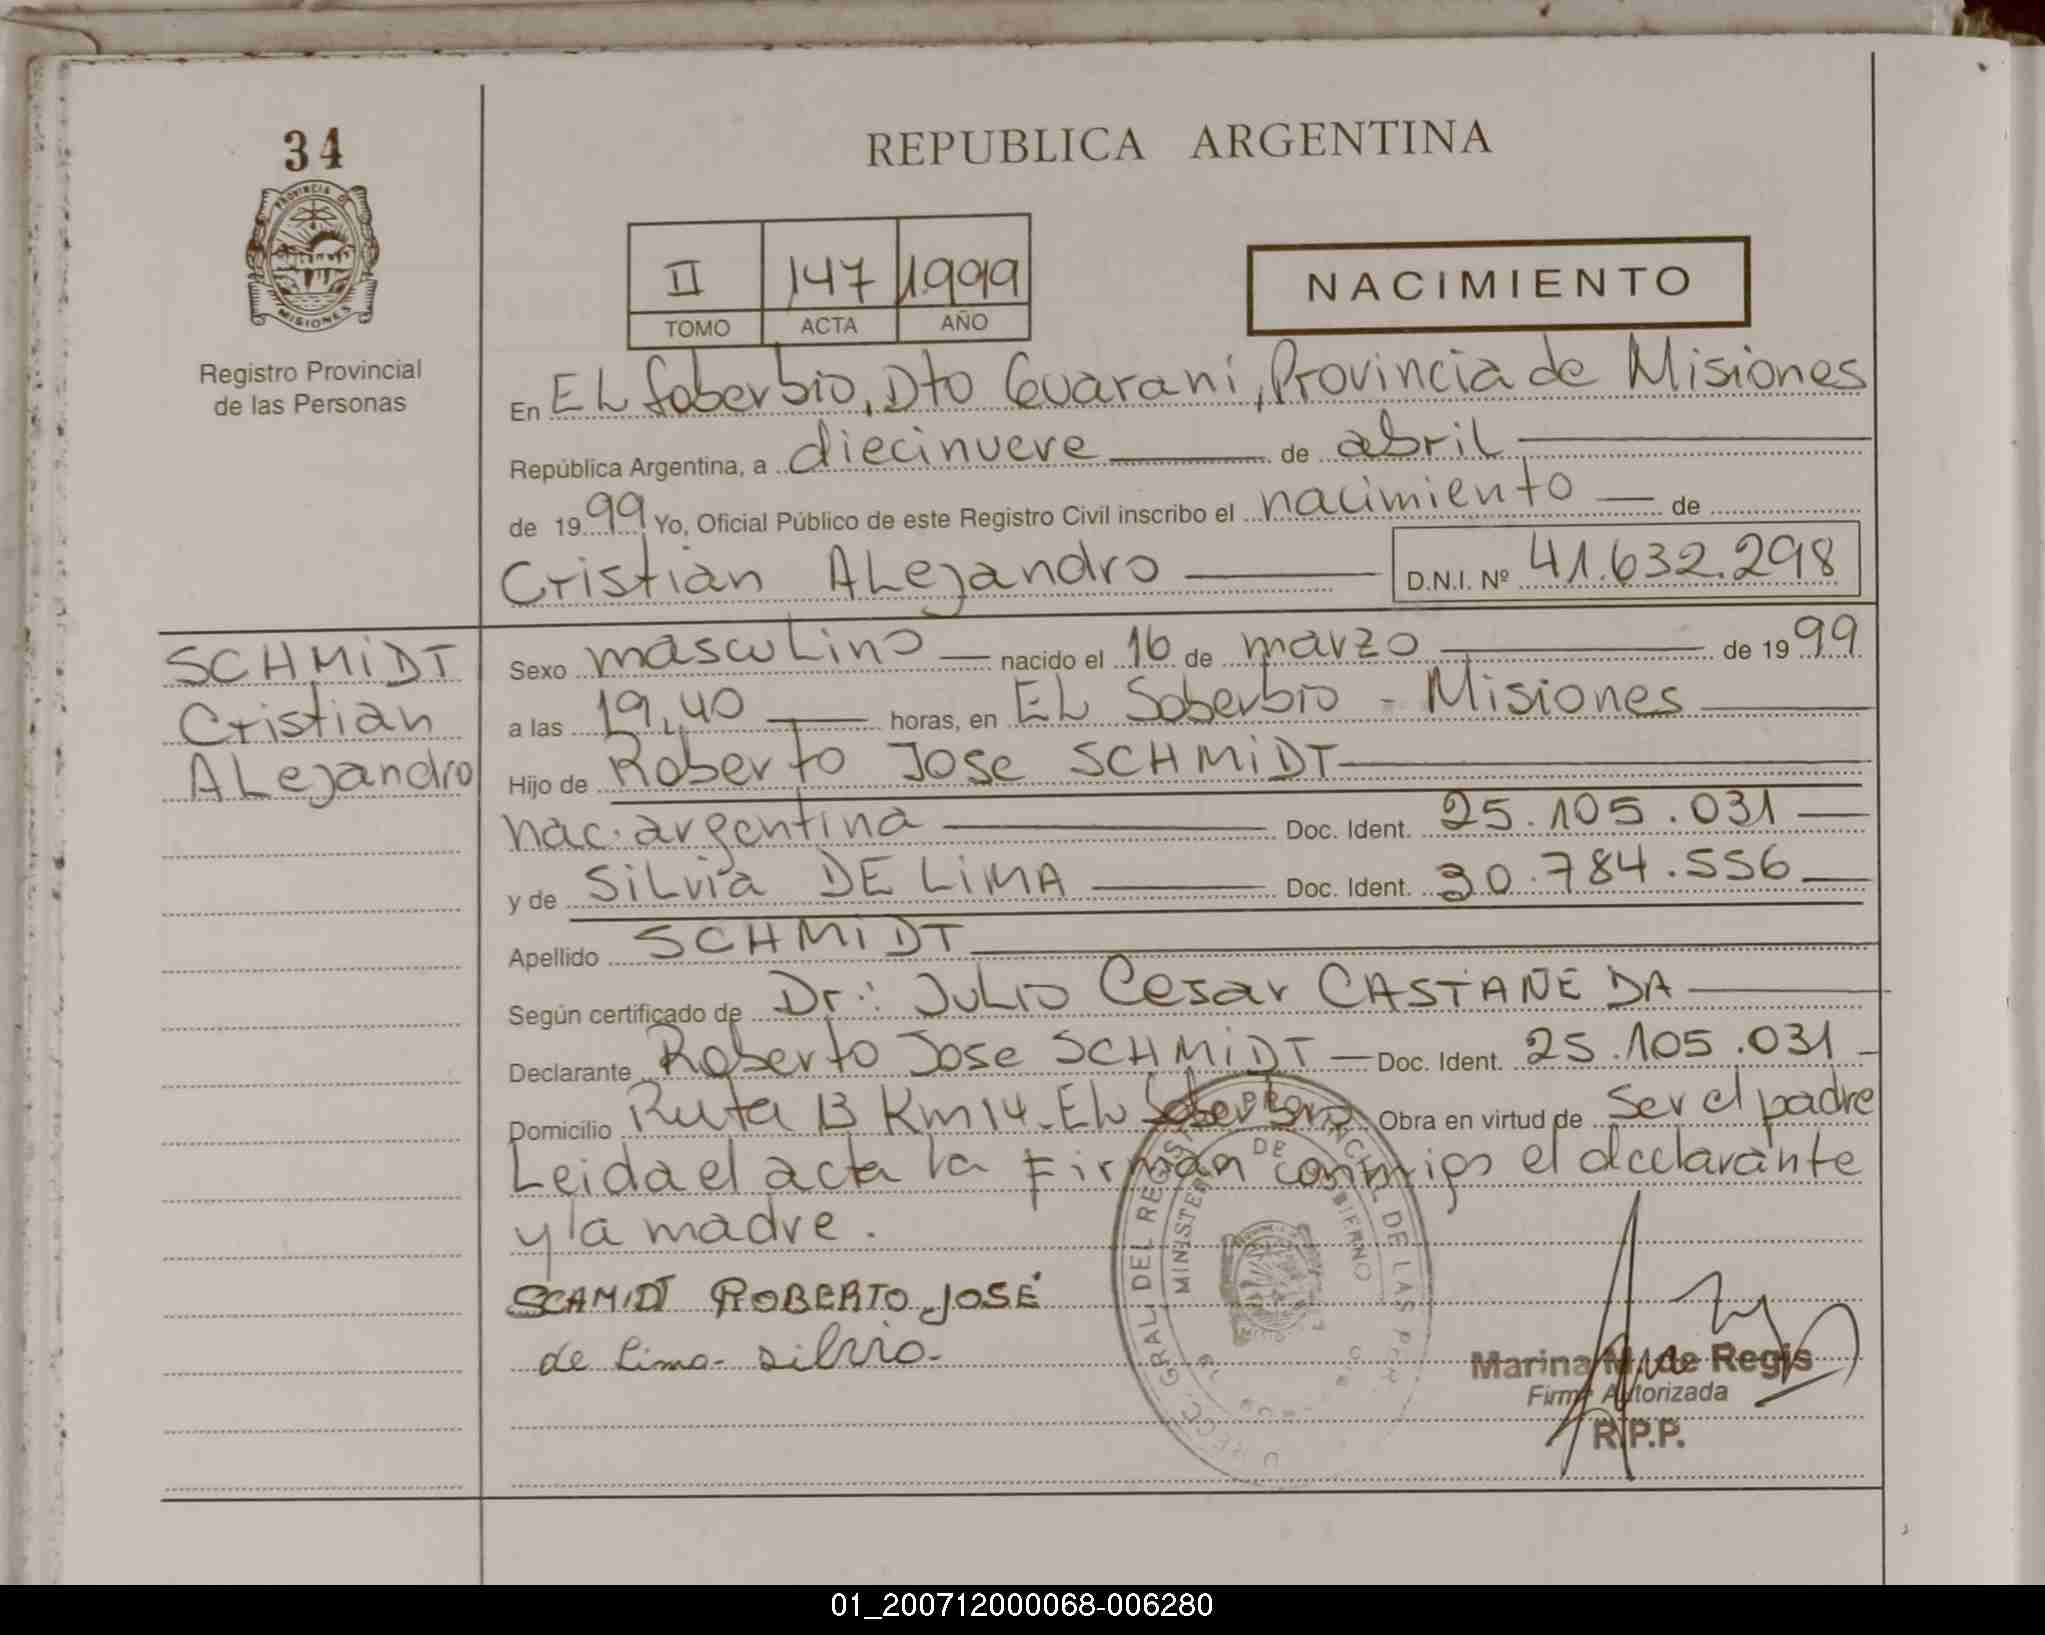 34
REPUBLICA ARGENTINA
PROVINCIA DE
MISIONES
Registro Provincial
de las Personas
II 147 1999
TOMO ACTA AÑO
NACIMIENTO
En EL Soberbio, Dto Guarani, Provincia de Misiones
República Argentina, a diecinueve de abril
de 1999 Yo, Oficial Público de este Registro Civil inscribo el nacimiento de
Cristian ALejandro D.N.I. Nº 41.632.298
SCHMIDT
Cristian
ALejandro
Sexo mascuLino nacido el 16 de marzo de 1999
a las 19,40 horas, en EL Soberbio - Misiones
Hijo de Roberto Jose SCHMIDT
nac. argentina Doc. Ident. 25.105.031
y de SiLvia DE LiMA Doc. Ident. 30.784.556
Apellido SCHMIDT
Según certificado de Dr.: JuLio Cesar CASTAÑEDA
Declarante Roberto Jose SCHMIDT Doc. Ident. 25.105.031
Domicilio Ruta 13 Km 14 - EL Soberbio Obra en virtud de Ser el padre
Leida el acta la Firman conmigo el declarante
y la madre.
SCAMIDT ROBERTO JOSÉ
de Lima - silvia -
Marina M. de Regis
Firma Autorizada
R.P.P.
GRAL. DEL REGIST. PROVINCIAL DE LAS PER
MINISTER DE BIERNO
01_200712000068-006280